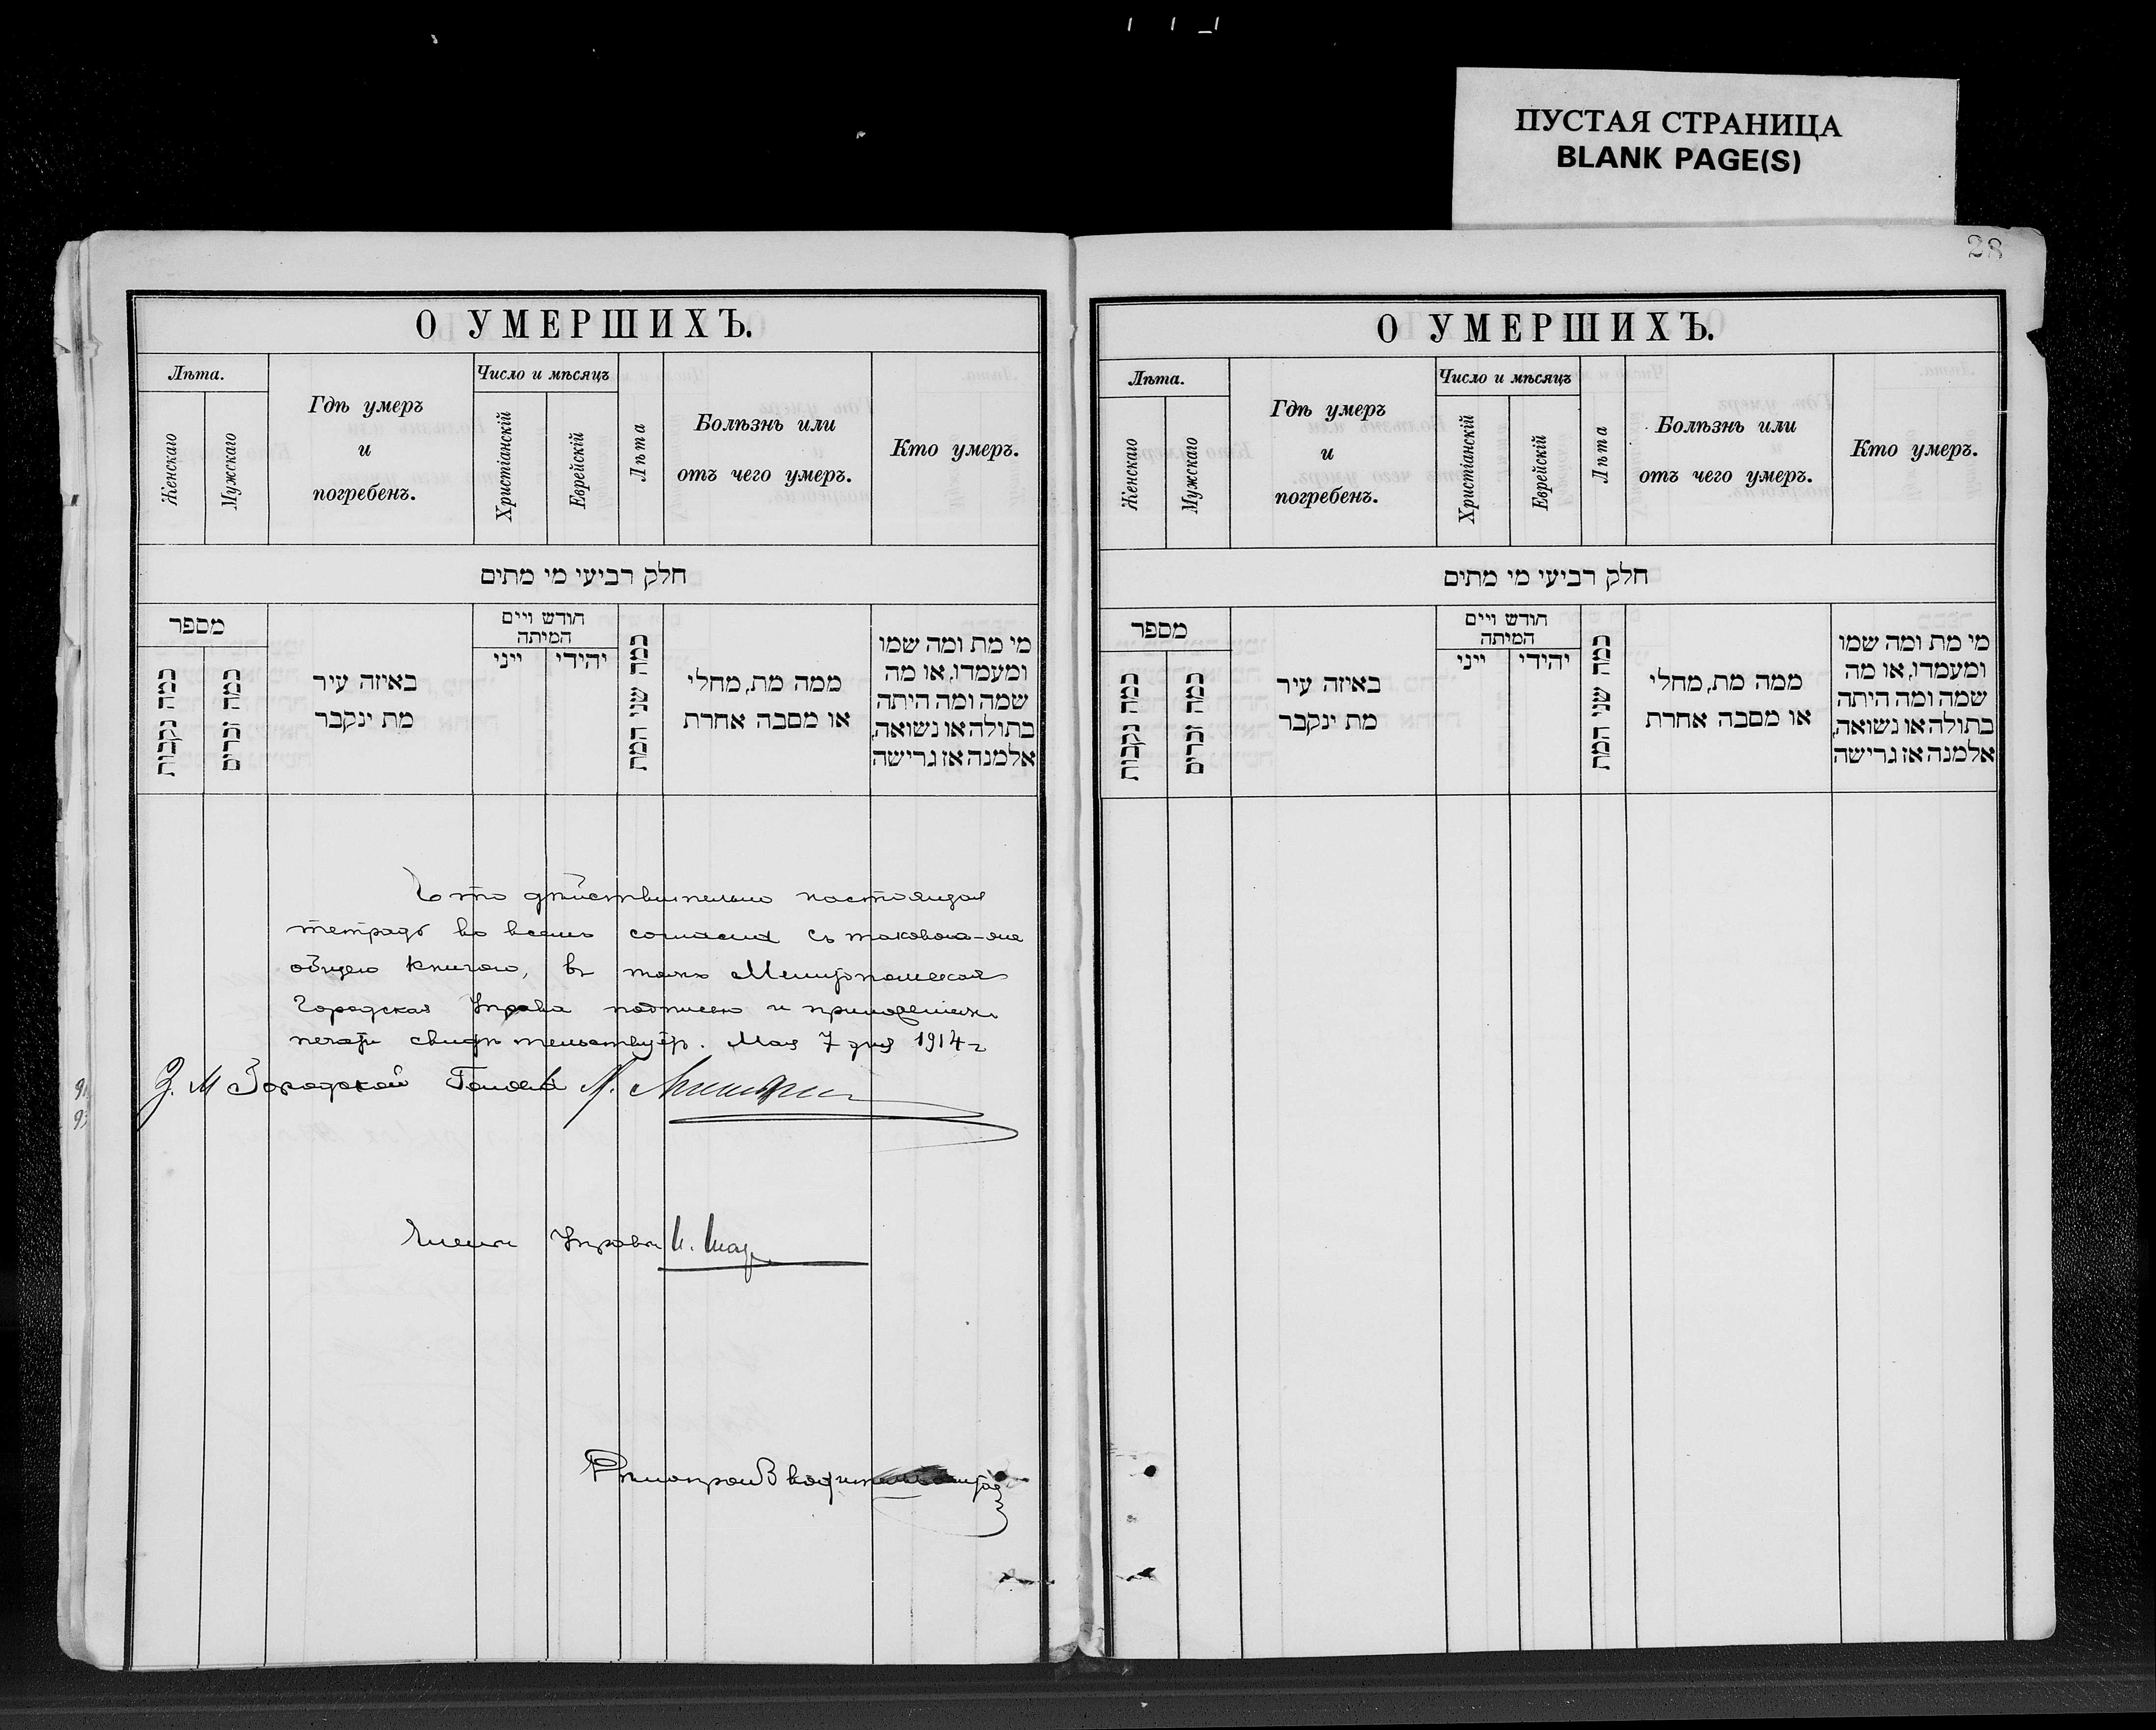 ПУСТАЯ СТРАНИЦА
BLANK PAGE(S)
28
О УМЕРШИХЪ.
Лѣта.
Женскаго
Мужскаго
Гдѣ умеръ
и
погребенъ.
Число и мѣсяцъ
Христіанскій
Еврейскій
Лѣта
Болѣзнь или
отъ чего умеръ.
Кто умеръ.
חלק רביעי מי מתים
מספר
כמה נקבות
כמה זכרים
באיזה עיר
מת ינקבר
חודש ויים
המיתה
ייני
יהודי
כמה שני המת
ממה מת, מחלי
או מסבה אחרת
מי מת ומה שמו
ומעמדו, או מה
שמה ומה היתה
בתולה או נשואה,
אלמנה אז גרישה
Что дѣйствительно настоящая
тетрадь во всемъ согласна съ таковою-же
общею книгою, въ томъ Мелитопольская
Городская Управа подписью и приложеніемъ
печати свидѣтельствуетъ. Мая 7 дня 1914 г
З. М Городской Головы
Члены Управы
О УМЕРШИХЪ.
Лѣта.
Женскаго
Мужскаго
Гдѣ умеръ
и
погребенъ.
Число и мѣсяцъ
Христіанскій
Еврейскій
Лѣта
Болѣзнь или
отъ чего умеръ.
Кто умеръ.
חלק רביעי מי מתים
מספר
כמה נקבות
כמה זכרים
באיזה עיר
מת ינקבר
חודש ויים
המיתה
ייני
יהודי
כמה שני המת
ממה מת, מחלי
או מסבה אחרת
מי מת ומה שמו
ומעמדו, או מה
שמה ומה היתה
בתולה או נשואה,
אלמנה אז גרישה